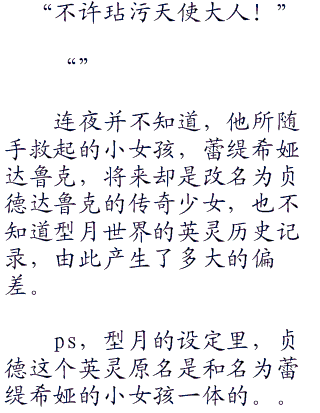 “不许玷污天使大人！”
“”
连夜并不知道，他所随
手救起的小女孩，蕾缇希娅
达鲁克，将来却是改名为贞
德达鲁克的传奇少女，也不
知道型月世界的英灵历史记
录，由此产生了多大的偏
差。
ps，型月的设定里，贞
德这个英灵原名是和名为蕾
缇希娅的小女孩一体的。。